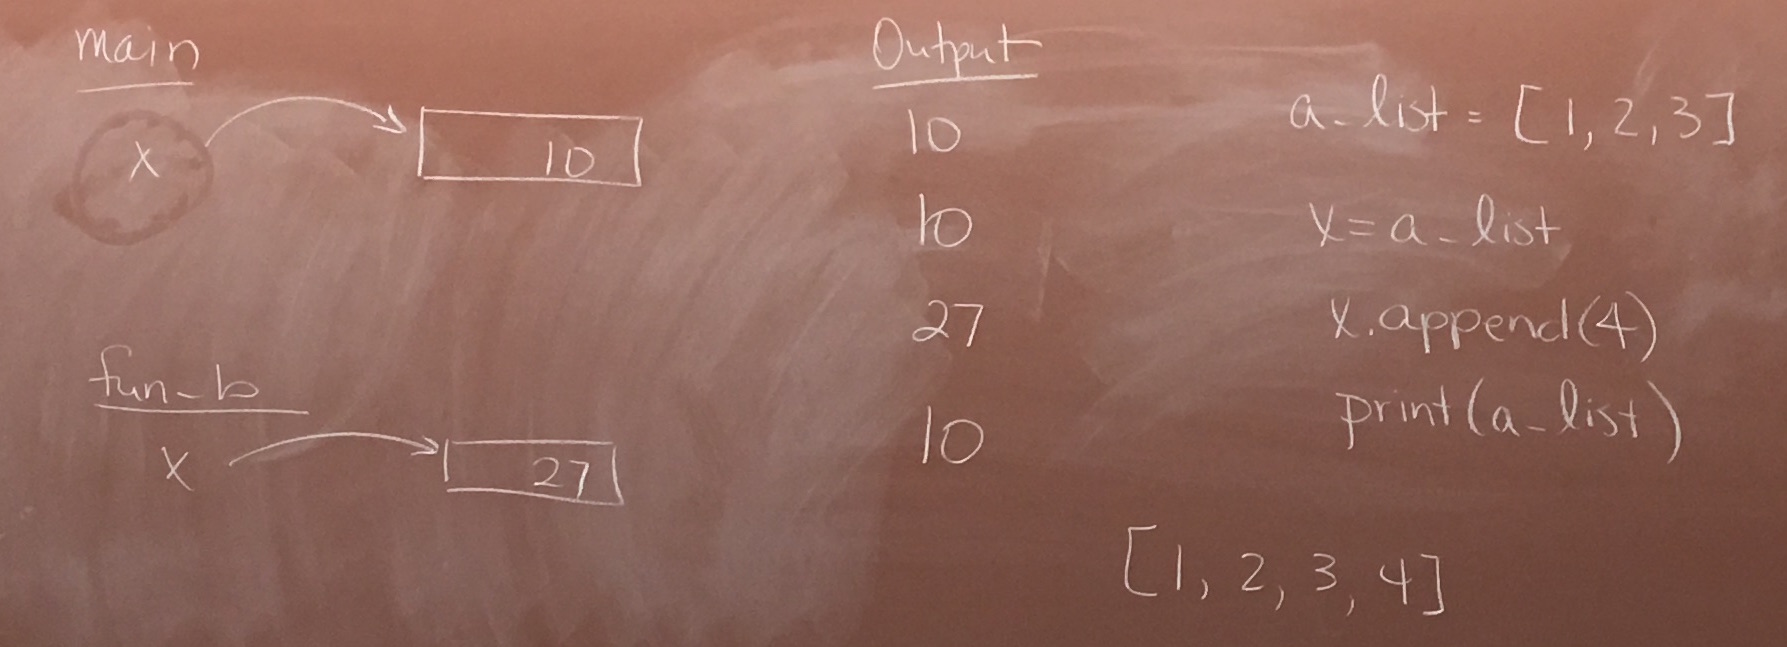 main
x
10
fun_b
x
27
Output
10
10
27
10
a_list = [1, 2, 3]
x = a_list
x.append(4)
print(a_list)
[1, 2, 3, 4]